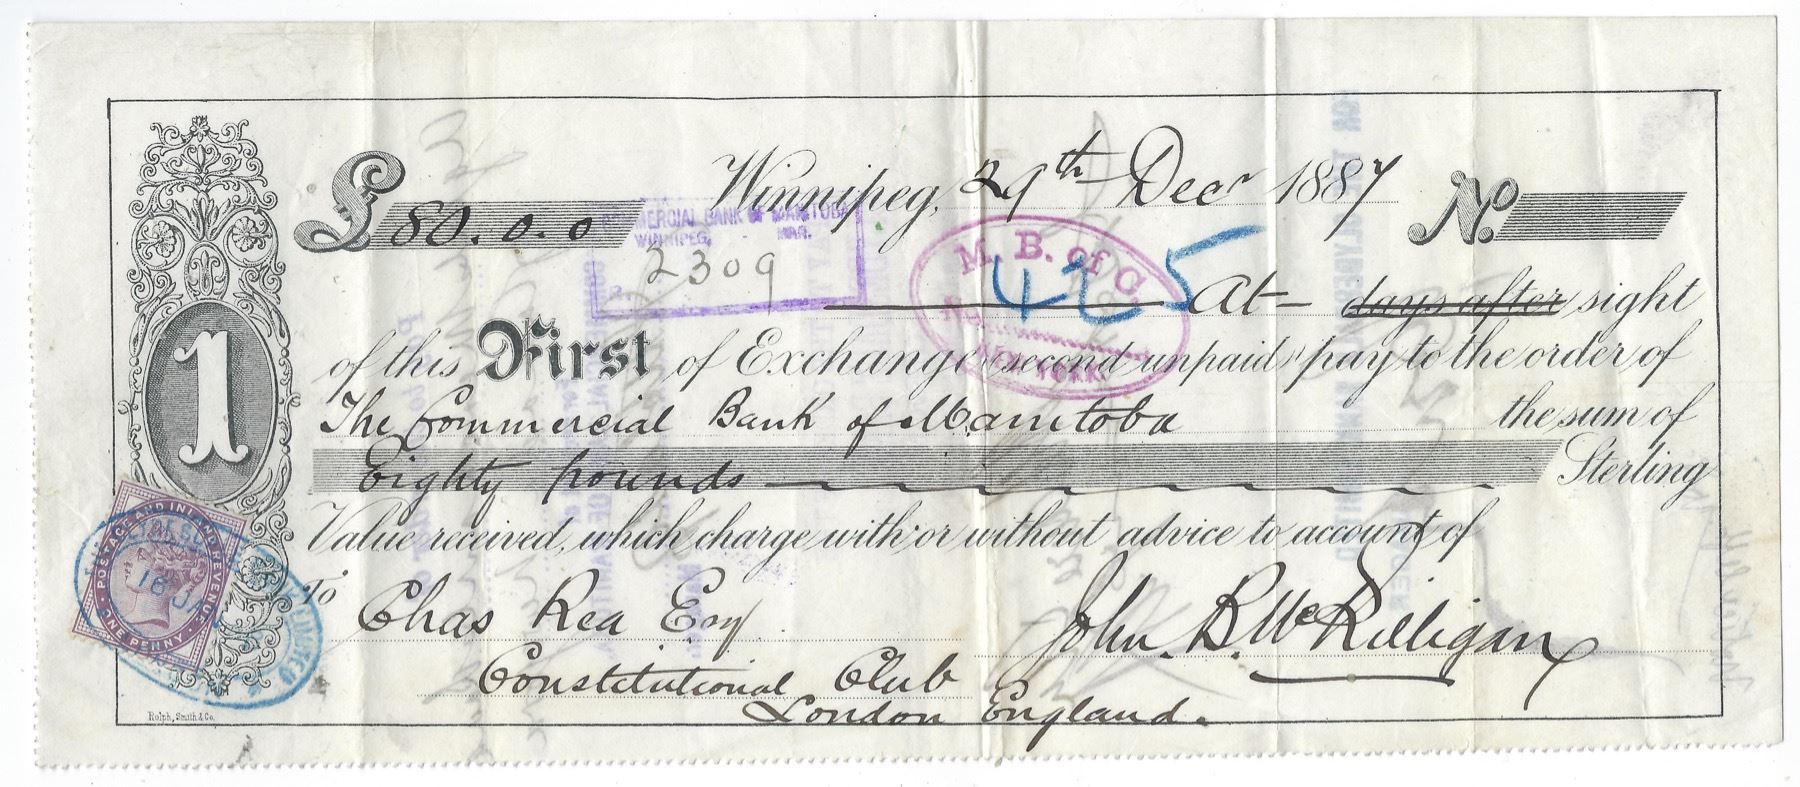 £ 80. 0. 0 Winnipeg, 29th Decr 1887 No.
COMMERCIAL BANK OF MANITOBA
WINNIPEG, - MAN.
2309
M. B. of C.
425
At days after sight
of this First of Exchange (second unpaid) pay to the order of
The Commercial Bank of Manitoba the sum of
Eighty pounds Sterling
1
Value received, which charge with or without advice to account of
To Chas Rea Esq John. B. McKilligan
Constitutional Club
London England.
POSTAGE AND INLAND REVENUE
ONE PENNY
Rolph, Smith & Co.